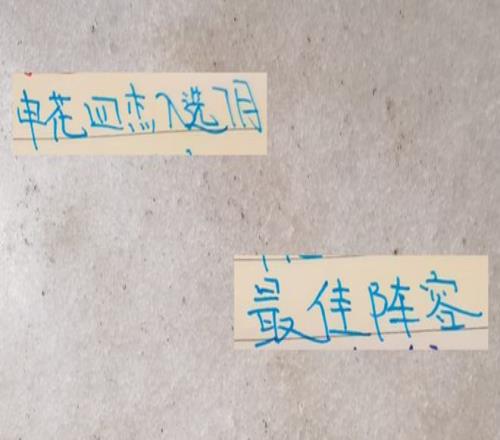 申花四杰入选7月
最佳阵容